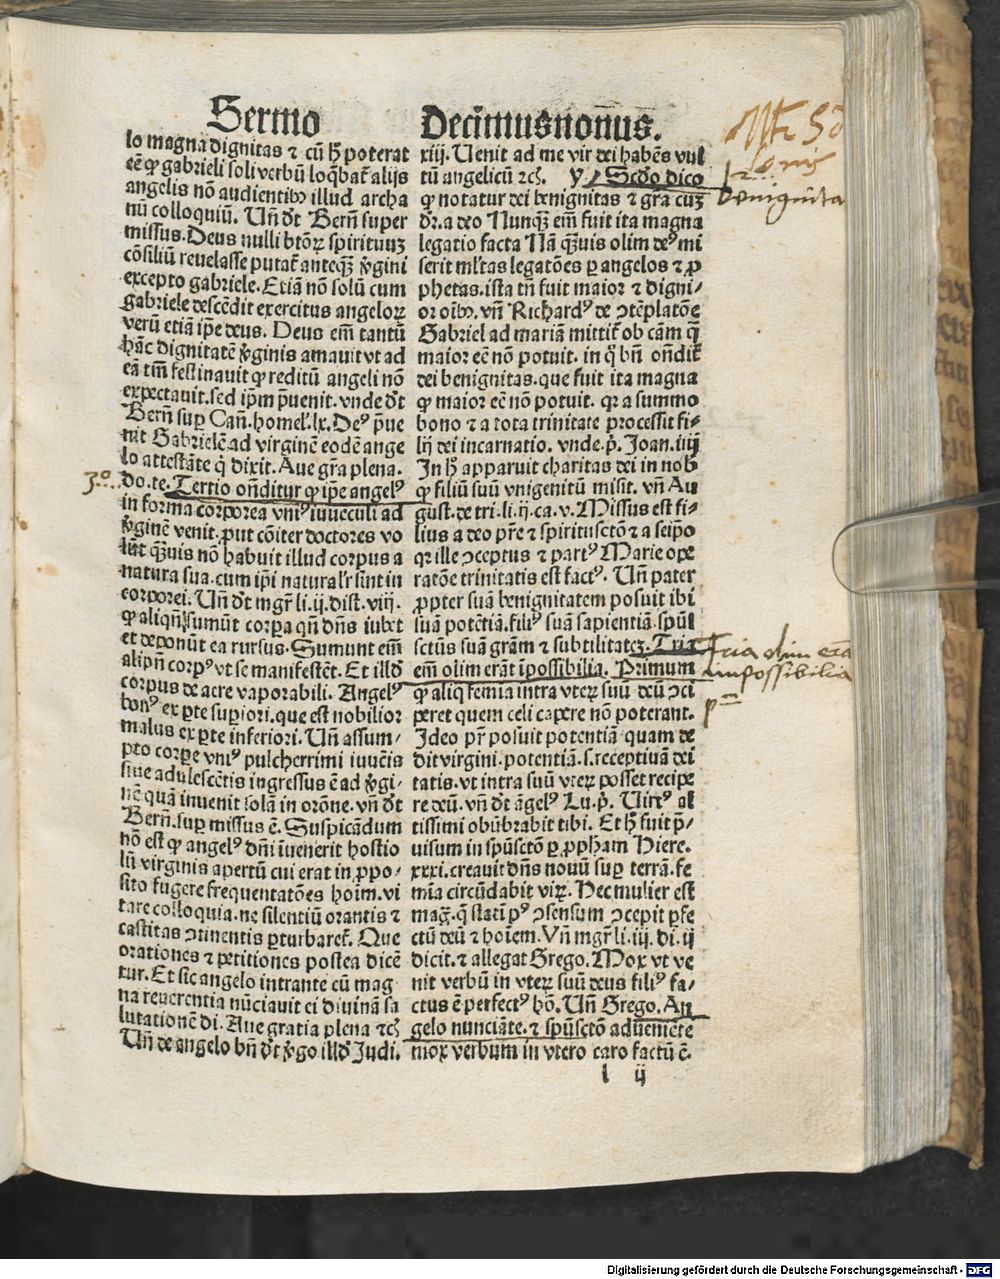 Sermo Decimusnonus.
lo magna dignitas ⁊ cū hͦ poterat
eē ꝙ gabrieli soli verbū loq̄bat᷑ alijs
angelis nō audientibꝰ illud archa
nū colloquiū. Un̄ dt̄ Bern̄ super
missus. Deus nulli btōꝝ spirituuꝫ
cōsiliū reuelasse putat᷑ anteqꝫ v̓gini
excepto gabriele. Etiā nō solū cum
gabriele descēdit exercitus angeloꝝ
verū etiā ip̄e deus. Deus em̄ tantū
hāc dignitatē v̓ginis amauit vt ad
eā tm̄ festinauit ꝙ reditū angeli nō
expectauit. sed ip̄m p̄uenit. vnde dt̄
Bern̄ suꝑ Can̄. homel. lx. Deꝰ p̄ue
nit Gabrielē ad virginē eodē ange
lo attestāte q̇ dixit. Aue gr̄a plena.
do. te. Tertio ondit᷑ur ꝙ ip̄e angelꝰ
in forma corporea vniꝰ iuuēculi ad
v̓ginē venit. put cōiter doctores vo
lūt qꝫuis nō habuit illud corpus a
natura sua. cum ip̄i natural'r sint in
corporei. Un̄ dt̄ mgr̄ li. ij. dist. viij.
ꝙ aliqn̄ sumūt corpa qn̄ dn̄s iubet
et deponūt ea rursus. Sumunt em̄
aliqn̄ corpꝰ vt se manifestēt. Et illd̓
corpus de aere vaporabili. Angelꝰ
bonꝰ ex ꝑte supiori. que est nobilior
malus ex ꝑte inferiori. Un̄ assum/
pto corpe vniꝰ pulcherrimi iuuēis
siue adulescētis ingressus ē ad v̓gi/
nē quā inuenit solā in orōne. vn̄ dt̄
Bern̄. suꝑ missus ē. Suspicādum
nō est ꝙ angelꝰ dn̄i iuenerit hostio
lū virginis apertū cui erat in ꝓpo/
sito fugere frequentatōes hoīm. vi
tare colloquia. ne silentiū orantis ⁊
castitas ꝯtinentis ꝑturbaret᷑. Que
orationes ⁊ petitiones postea dicē
tur. Et sic angelo intrante cū mag
na reuerentia nūciauit ei diuinā sa
lutationē di. Aue gratia plena ⁊cͣ
Un̄ de angelo bn̄ dt̄ v̓go illd̓ Judi.
xiij. Uenit ad me vir dei habēs vul
tū angelicū ⁊cͣ. Scd̓o dico
ꝙ notatur dei benignitas ⁊ gr̄a cuꝫ
dr̄. a deo Nunqꝫ em̄ fuit ita magna
legatio facta Nā qꝫuis olim deꝰ mi
serit ml̓tas legatōes ꝑ angelos ⁊ ꝓ
phetas. ista tn̄ fuit maior ⁊ digni/
or oībꝰ. vn̄ Richardꝰ de ꝯtēplatōe
Gabriel ad mariā mittit᷑ ob cām q̄
maior eē nō potuit. in qͦ bn̄ ondit᷑
dei benignitas. que fuit ita magna
ꝙ maior eē nō potuit. qꝛ a summo
bono ⁊ a tota trinitate processit fi-
lij dei incarnatio. vnde. p̄. Joan. iiij
In hͦ apparuit charitas dei in nob̓
ꝙ filiū suū vnigenitū misit. vn̄ Au
gust. de tri. li. ij. ca. v. Missus est fi-
lius a deo pr̄e ⁊ spiritusctō ⁊ a seipo
qꝛ ille ꝯceptus ⁊ partꝰ Marie ope
ratōe trinitatis est factꝰ. Un̄ pater
ꝓpter suā benignitatem posuit ibi
suā potētiā. filiꝰ suā sapientiā. spūs
sctūs suā grām ⁊ subtilitateꝫ. Tria
em̄ olim erāt īpossibilia. Primum
ꝙ aliq̄ femīa intra vteꝝ suū deū ꝯci
peret quem celi capere nō poterant.
Ideo pr̄ posuit potentiā quam de
dit virgini. potentiā. s. receptiuā dei
tatis. vt intra suū vteꝝ posset recipe
re deū. vn̄ dt̄ āgelꝰ Lu. p̄. Uirtꝰ al
tissimi obūbrabit tibi. Et hͦ fuit p̄/
uisum in spūsctō ꝑ ꝓpham Hiere.
xxxi. creauit dn̄s nouū suꝑ terrā. fe
mīa circūdabit viꝝ. Hec mulier est
mag. q̄ statī pꝰ ꝯsensum ꝯcepit ꝑfe
ctū deū ⁊ hoīem. Vn̄ mgr̄ li. iij. di. ij
dicit. ⁊ allegat Grego. Mox vt ve
nit verbū in vteꝝ suū deus filiꝰ fa/
ctus ē perfectꝰ hō. Un̄ Grego. An
gelo nunciāte. ⁊ spūsctō adueniēte
mox verbum in vtero caro factū ē.
l ij
benignita
3º.
Tria olim erāt
impossibilia
pm
Digitalisierung gefördert durch die Deutsche Forschungsgemeinschaft - DFG